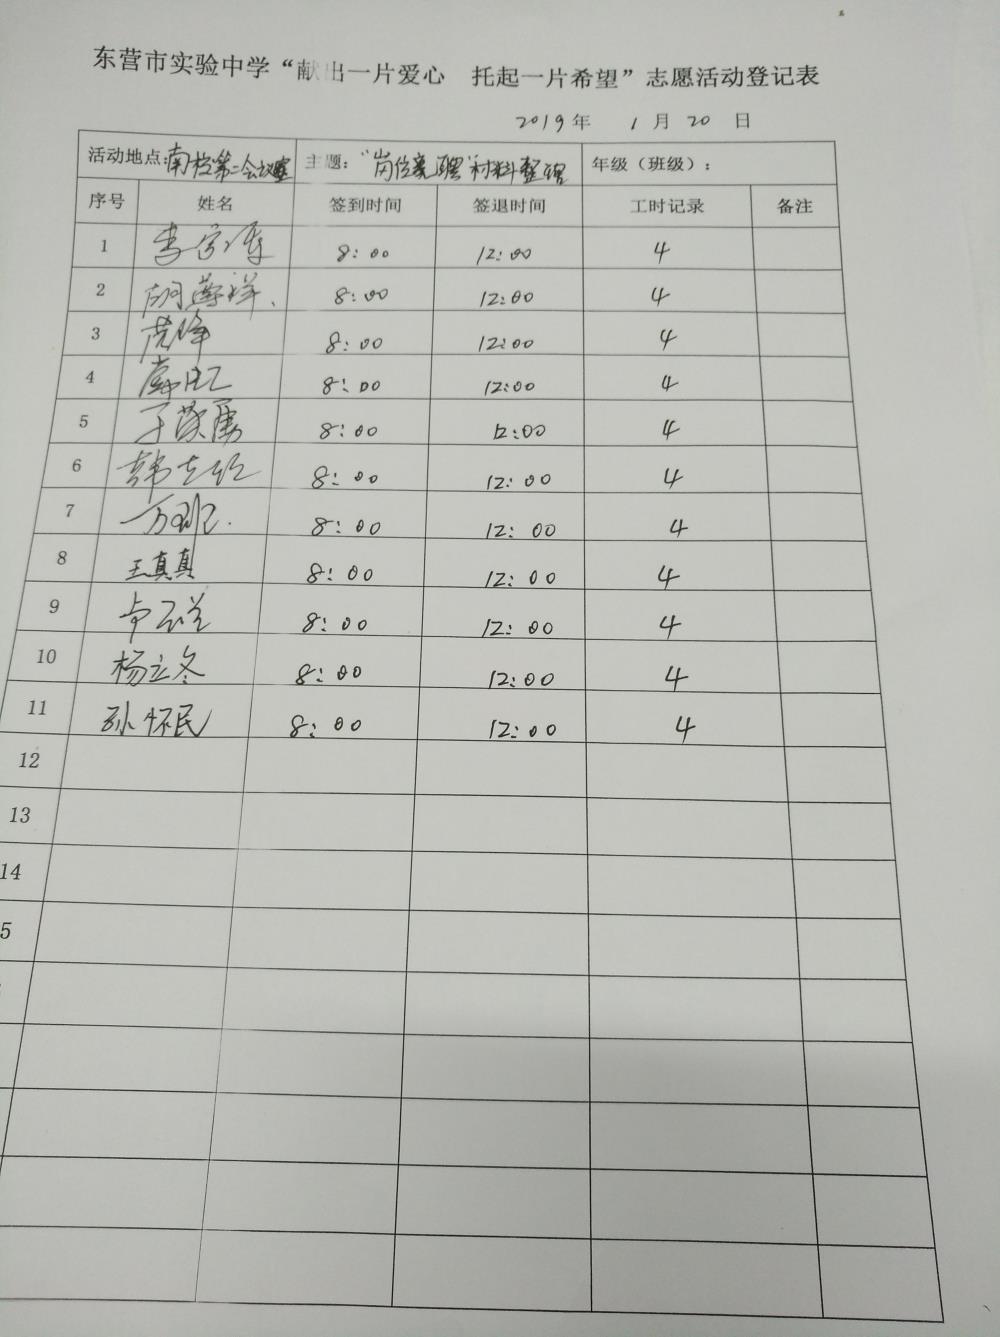 东营市实验中学“献出一片爱心 托起一片希望”志愿活动登记表
2019年 1月 20 日
活动地点:南校第二会议室 主题:“岗位竞聘”材料整理 年级(班级):
序号 姓名 签到时间 签退时间 工时记录 备注
1 8:00 12:00 4
2 8:00 12:00 4
3 8:00 12:00 4
4 8:00 12:00 4
5 8:00 12:00 4
6 8:00 12:00 4
7 8:00 12:00 4
8 王真真 8:00 12:00 4
9 8:00 12:00 4
10 杨立冬 8:00 12:00 4
11 孙怀民 8:00 12:00 4
12
13
14
5